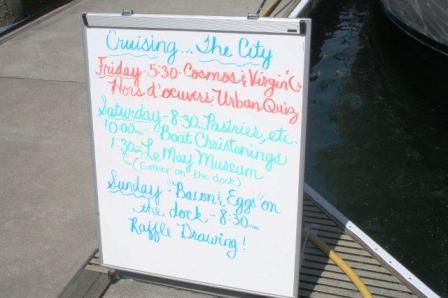 Cruising... The City
Friday - 5:30 - Cosmos & Virgin "C
Hors d'ocuvers, Urban Quiz
Saturday - 8:30... Pastries, etc.
10:00... Boat Christenings
1:30... LeMay Museum
(Gather on the dock)
Sunday - Bacon & Eggs "on
the dock - 8:30...
Raffle Drawing!